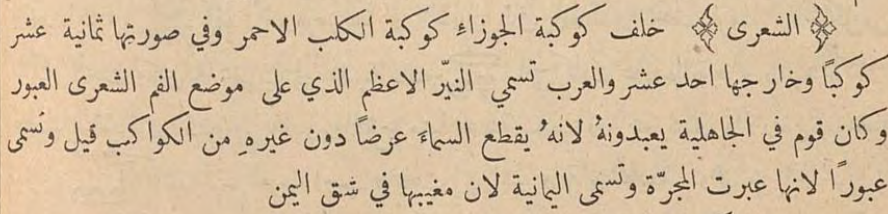 ﴿ الشعرى ﴾ خلف كوكبة الجوزاء كوكبة الكلب الاحمر وفي صورتها ثمانية عشر
كوكبًا وخارجها احد عشر والعرب تسمي النيّر الاعظم الذي على موضع الفم الشعرى العبور
وكان قوم في الجاهلية يعبدونهُ لانهُ يقطع السماءَ عرضاً دون غيرهِ من الكواكب قيل وتسمى
عبورًا لانها عبرت المجرّة وتسمى اليمانية لان مغيبها في شق اليمن